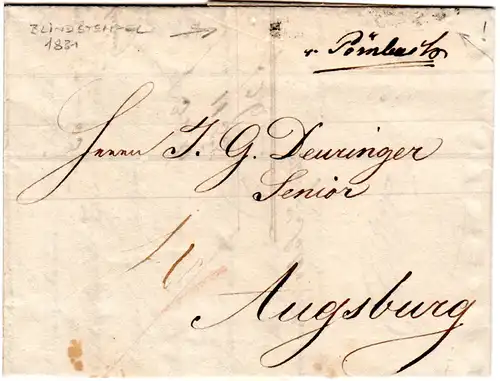 BLINDSTEMPEL
1831
v. Pörnbach
!
Herrn J. G. Deuringer
Senior
4
Augsburg